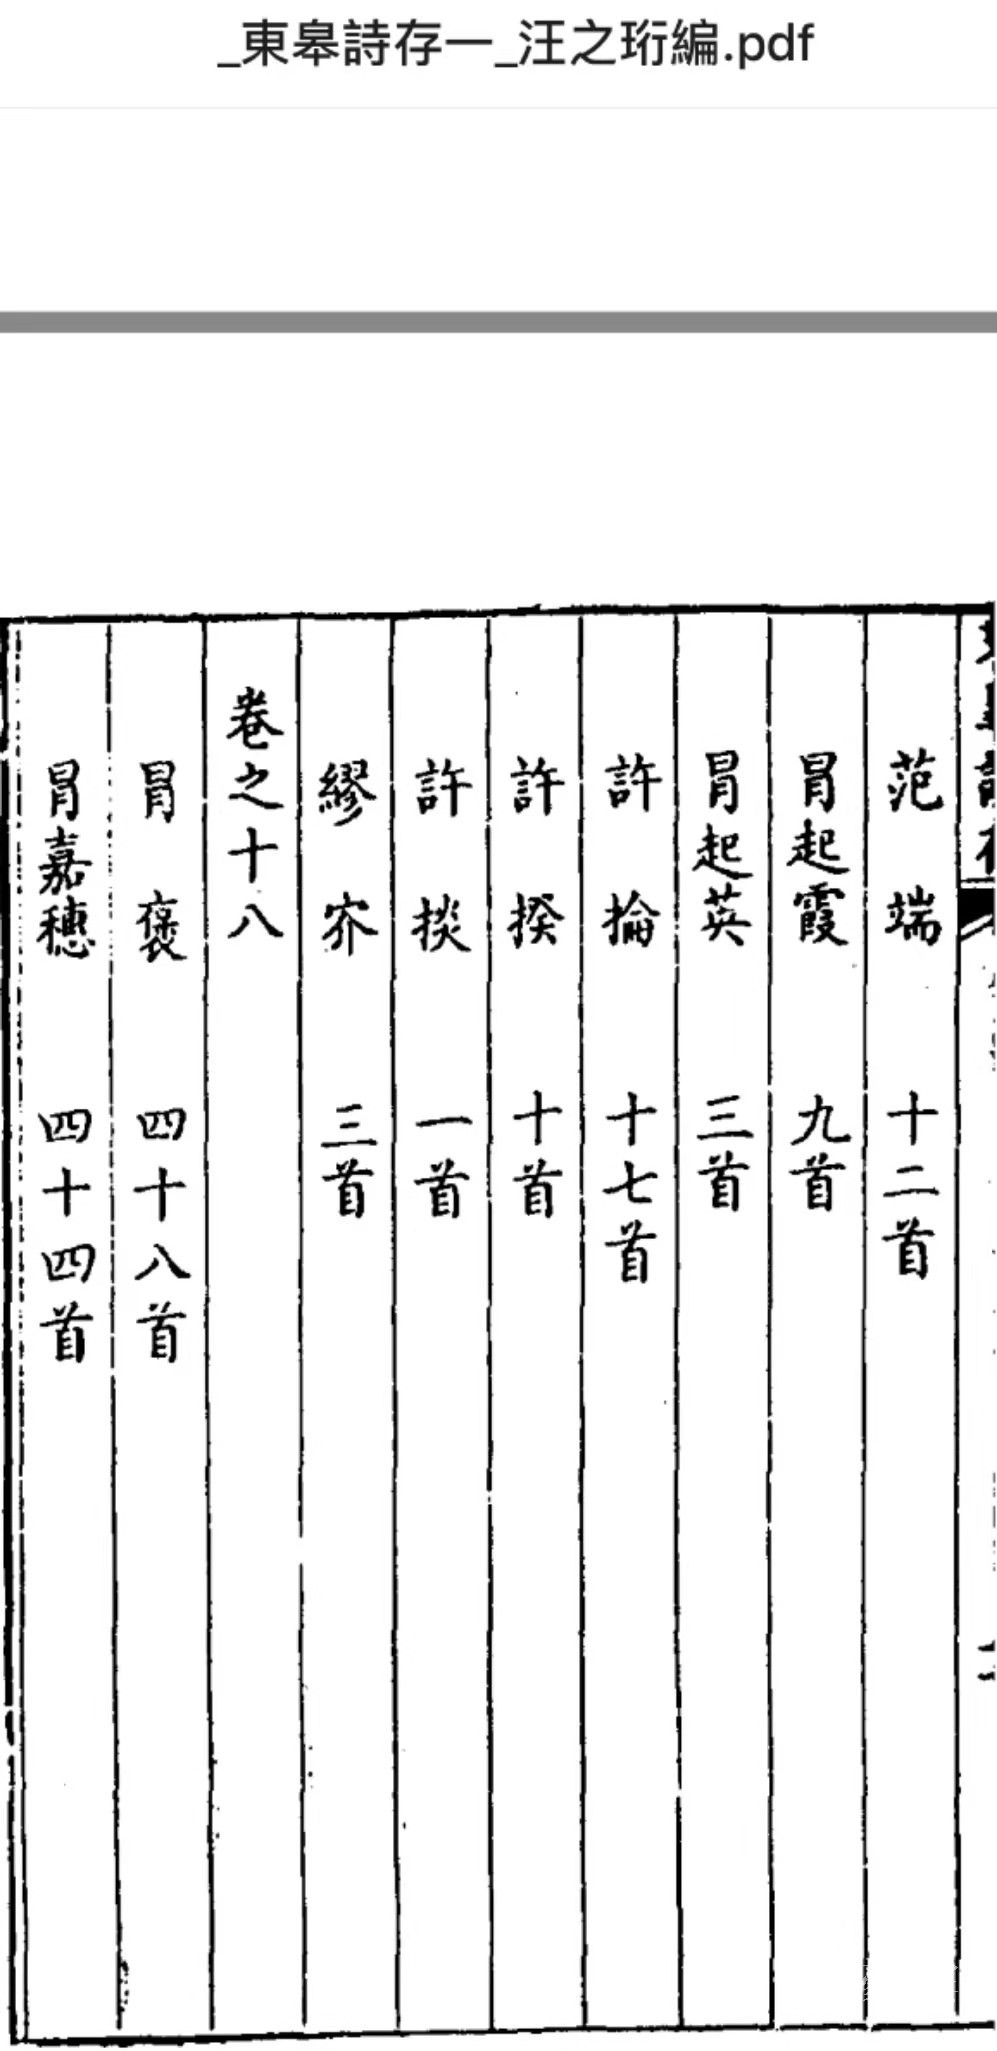 _東皋詩存一_汪之珩編.pdf
范　端　十二首
冒起霞　九首
冒起英　三首
許　掄　十七首
許　揆　十首
許　掞　一首
繆　夰　三首
卷之十八
冒　褒　四十八首
冒嘉穗　四十四首